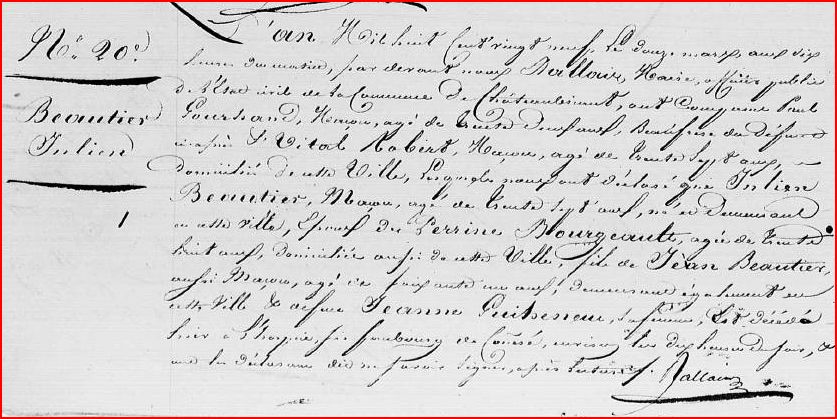 N.º 20.
Beautier
Julien
L'an Mil huit Cent vingt neuf, le douze mars, aux dix
heures du matin, par devant nous Ballais, Maire, officier public
de l'Etat civil de la Commune de Châteaubriant, ont comparu Paul
Gourhand, Maçon, agé de trente deux ans, Beaufrère du défunt
ci après & Vital Robert, Maçon, agé de trente sept ans,
domicilié de cette Ville, lesquels nous ont déclaré que Julien
Beautier, Maçon, agé de trente sept ans, né et demeurant
en cette Ville, Epoux de Perrine Bourgeault, agée de trente
huit ans, domiciliée aussi de cette Ville, fils de Jean Beautier,
aussi Maçon, agé de soixante un ans, demeurant également en
cette Ville & de feue Jeanne Guiheneu, sa femme, Est décédé
hier à l'hospice, sis faubourg de Couëré, environ les dix heures du soir, &
ont les déclarans dit ne savoir signer, après lecture.
Ballais